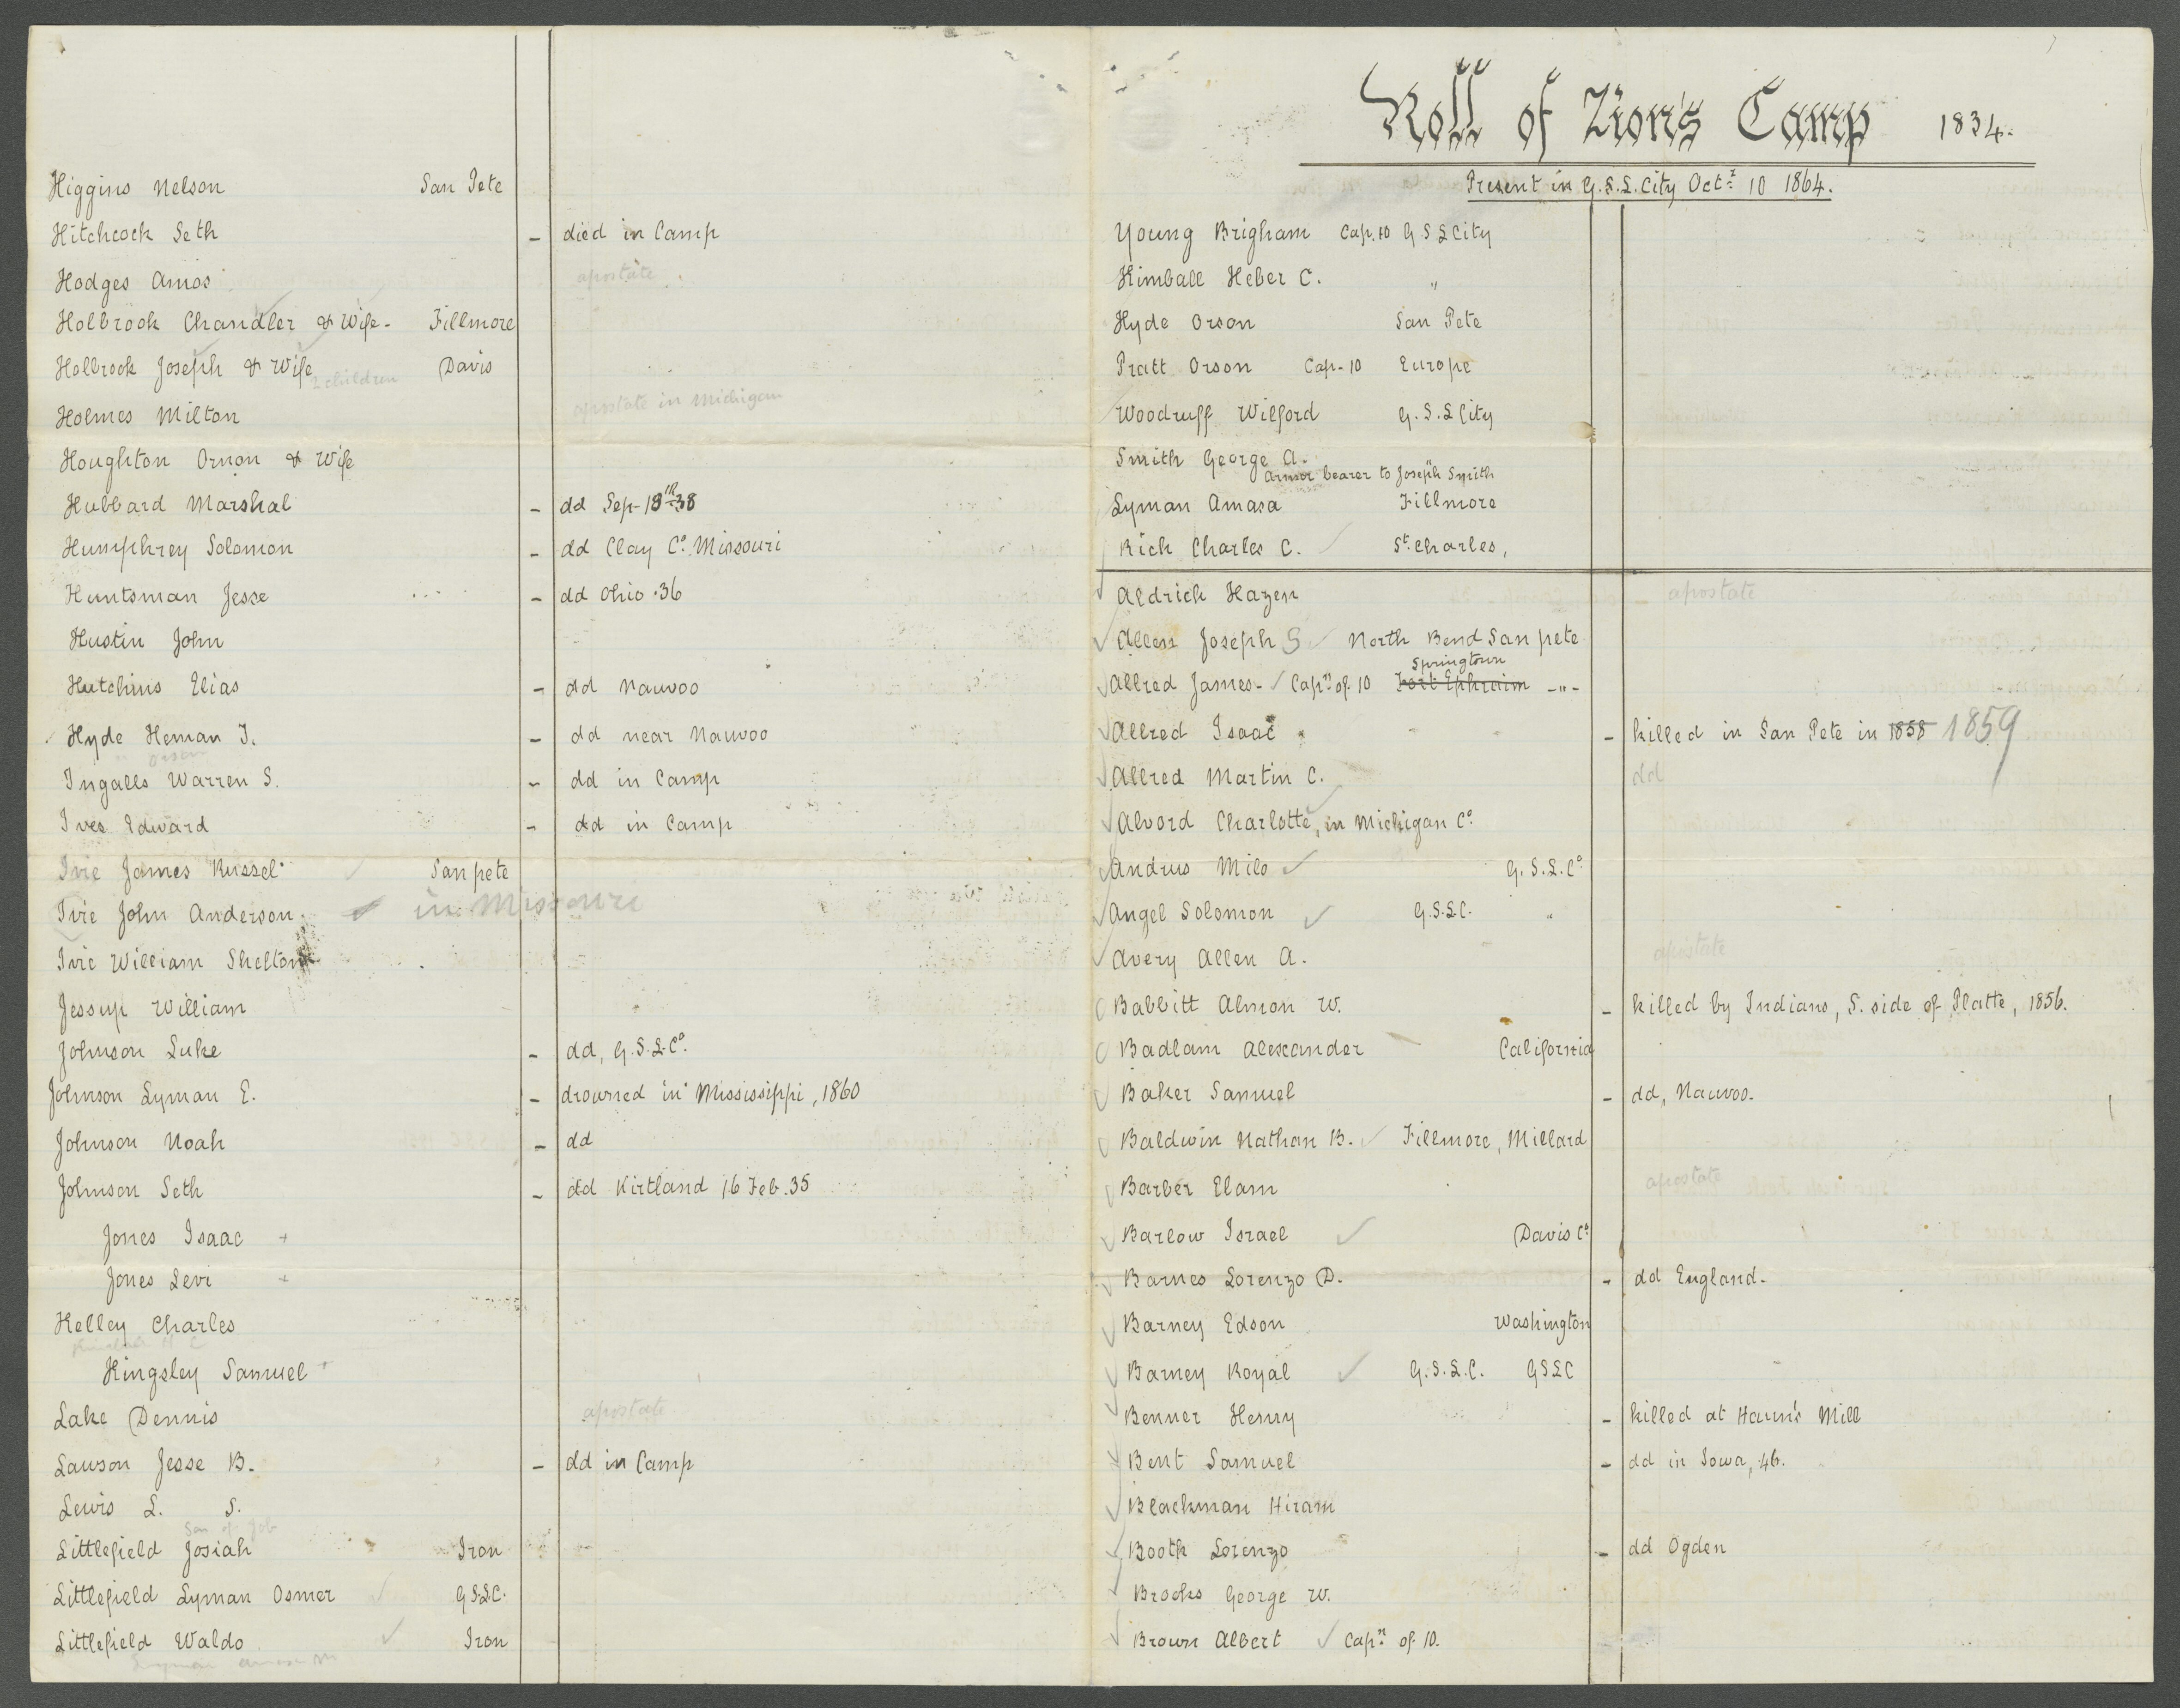 Higgins Nelson San Pete
Hitchcock Seth - died in Camp
Hodges Amos apostate
Holbrook Chandler & Wife - Fillmore
Holbrook Joseph & Wife Davis
2 children
Holmes Milton apostate in Michigan
Houghton Ornon & Wife
Hubbard Marshal - dd Sep-18th 38
Humphrey Solomon - dd Clay Co. Missouri
Huntsman Jesse - dd Ohio .36
Hustin John
Hutchins Elias - dd Nauvoo
Hyde Heman T. - dd near Nauvoo
" Orson
Ingalls Warren S. - dd in Camp
Ives Edward - dd in Camp
Ivie James Russel San pete
Ivie John Anderson in Missouri
Ivie William Shelton
Jessup William
Johnson Luke - dd, G.S.L.Co.
Johnson Lyman E. - drowned in Mississippi, 1860
Johnson Noah - dd
Johnson Seth - dd Kirtland 16 Feb. 35
Jones Isaac +
Jones Levi +
Kelley Charles
Kimball H C
Kingsley Samuel +
Lake Dennis apostate
Lawson Jesse B. - dd in Camp
Lewis L. S.
Son of Job
Littlefield Josiah Iron
Littlefield Lyman Osmer G.S.L.C.
Littlefield Waldo Iron
Lyman Amasa M
Roll of Zion's Camp 1834.
Present in G.S.L. City Oct. 10 1864.
Young Brigham Cap. 10 G S L City
Kimball Heber C. "
Hyde Orson San Pete
Pratt Orson Cap-10 Europe
Woodruff Wilford G.S.L City
Smith George A. "
Armor bearer to Joseph Smith
Lyman Amasa Fillmore
Rich Charles C. St. Charles,
Aldrich Hazen apostate
Allen Joseph S North Bend San pete
Springtown
Allred James - Capn. of 10 Fort Ephraim -"-
Allred Isaac - killed in San Pete in 1858 1859
Allred Martin C. dd
Alvord Charlotte, in Michigan Co.
Andrus Milo G.S.L.Co.
Angel Solomon G.S.L.C. "
Avery Allen A. apostate
Babbitt Almon W. - killed by Indians, S. side of Platte, 1856.
Badlam Alexander California
Baker Samuel - dd, Nauvoo.
Baldwin Nathan B. Fillmore, Millard
Barber Elam apostate
Barlow Israel Davis Co.
Barnes Lorenzo D. - dd England.
Barney Edson Washington
Barney Royal G.S.L.C. GSLC
Benner Henry - killed at Haun's Mill
Bent Samuel - dd in Iowa, 46.
Blackman Hiram
Booth Lorenzo - dd Ogden
Brooks George W.
Brown Albert Capn. of 10.